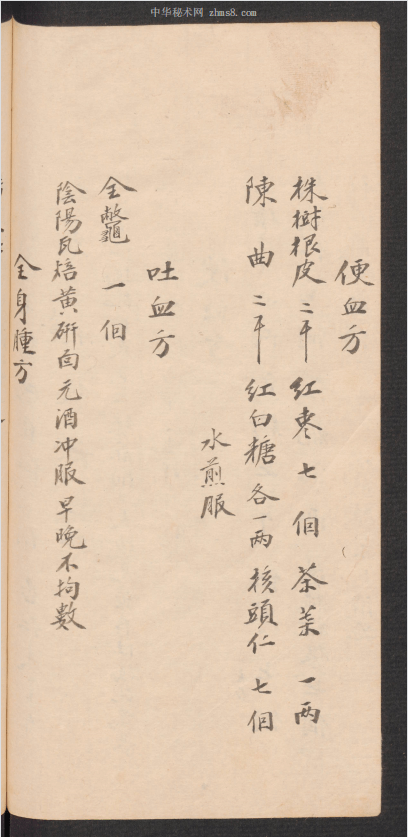 中华秘术网 zhms8.com
便血方
株樹根皮 二千 紅枣 七個 茶菜 一両
陳曲 二千 紅白糖 各一両 核頭仁 七個
水煎服
吐血方
全鼈 一個
陰陽瓦焙黄研面元酒冲服早晚不拘數
全身腫方